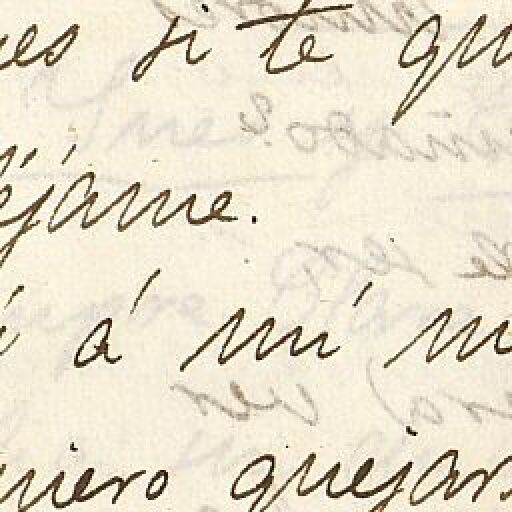 es si te qu
éjame.
á mí m
uiero quejar